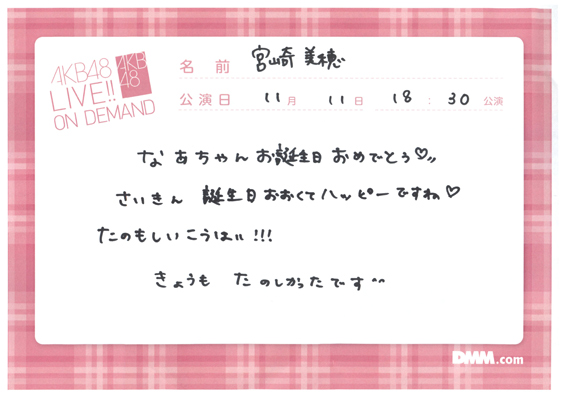 AKB48
LIVE!!
ON DEMAND
AKB
48
名 前 宮崎 美穂
公演日 11月 11日 18:30 公演
なぁちゃん お誕生日 おめでとう♡〃
さいきん 誕生日おおくてハッピーですね♡
たのもしいこうはい!!!
きょうも たのしかったです^^
DMM.com